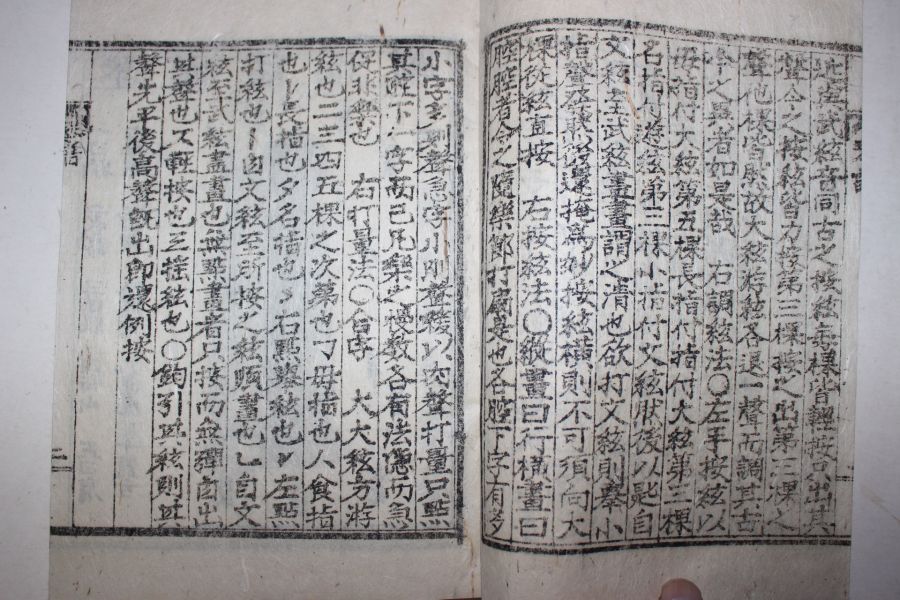 此堂武絃音同古之按絃每棵皆輕按只出其
聲今之按絃皆力按第三棵按之出第二棵之
聲他棵皆然故大絃游絃各退一聲而調其古
今之異者如是哉 右調絃法○左手按絃以
母指付大絃第五棵長指付指付大絃第三棵
名指付遊絃第三棵小指付文絃狀後以匙自
文絃至武絃畫畫謂之淸也欲打文絃則擧小
指
按絃
指則不可須向大
棵從絃直按 右按絃法○縱畫曰行橫畫曰
腔腔者今之隨樂節打
是也各腔下字有多
小字多則聲急字小則聲緩以此聲打量只點
其腔下一字而已凡樂之慢數各有法慢而急
促非樂也 右打量法○合字 大大絃方游
絃也二三四五棵之次第也ㄱ母指也人食指
也ㅣ長指也夕名指也丶右點擧絃也丶左點
打絃也ㅣ自文絃至所按之絃順畫也乚自文
絃至武絃畫畫也無點畫者只按而無彈自出
其聲也又輕按也三搖絃也○鉤引其絃則其
聲先平後高聲旣出卽還例按
二